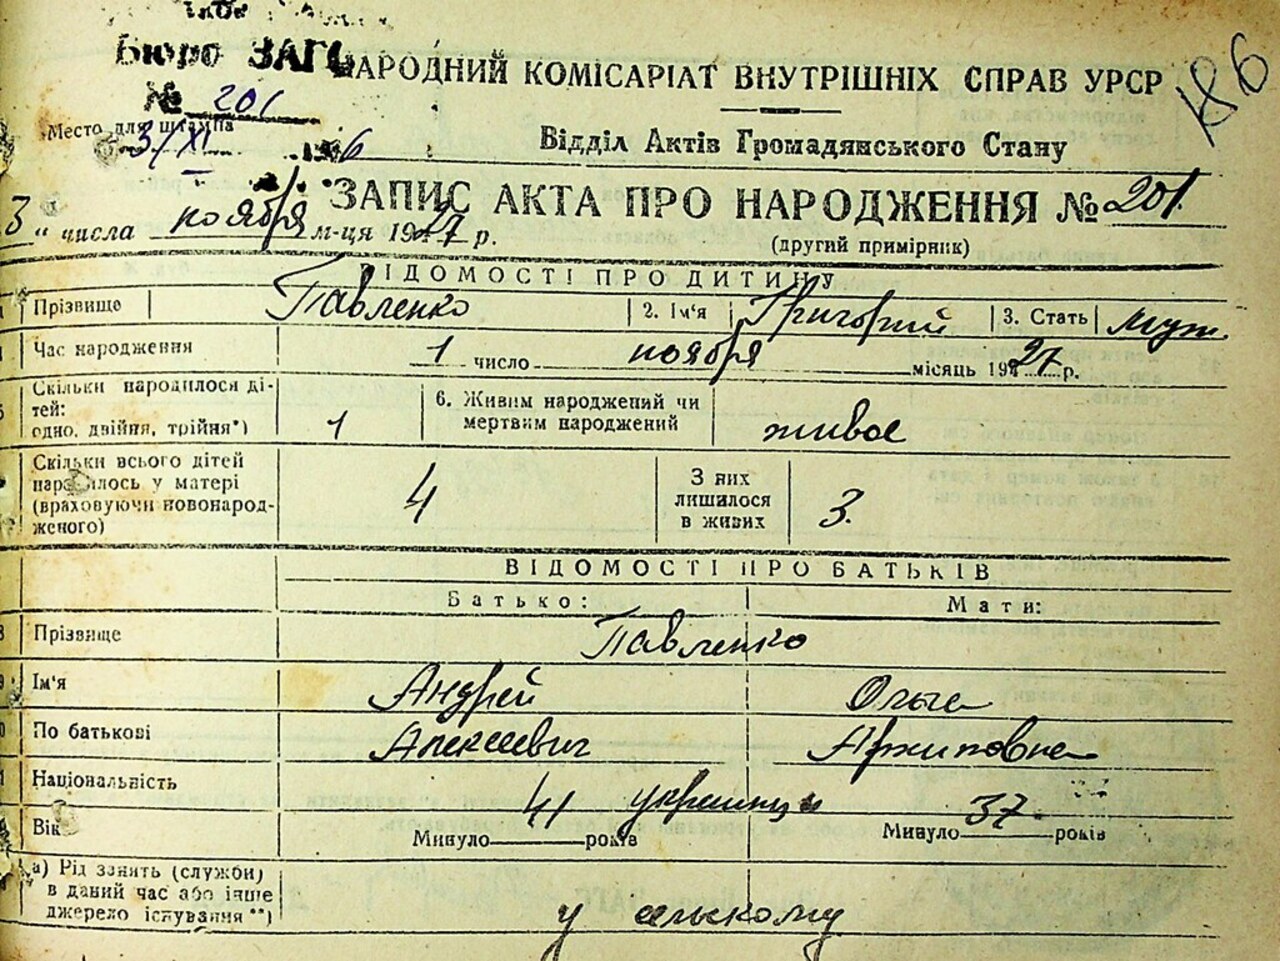 Бюро ЗАГС
НАРОДНИЙ КОМІСАРІАТ ВНУТРІШНІХ СПРАВ УРСР
№ 201
Место для штампа
3/XI
6
Відділ Актів Громадянського Стану
ЗАПИС АКТА ПРО НАРОДЖЕННЯ № 201
3 " числа ноября м-ця 1927 р.
(другий примірник)
ВІДОМОСТІ ПРО ДИТИНУ
Прізвище Павленко 2. Ім'я Григорий 3. Стать муж.
Час народження 1 число ноября місяць 1927 р.
Скільки народилося ді-
тей:
одно, двійня, трійня*) 1
6. Живим народжений чи
мертвим народжений живое
Скільки всього дітей
народилось у матері
(враховуючи новонарод-
женого) 4
З них
лишилося
в живих 3.
ВІДОМОСТІ ПРО БАТЬКІВ
Батько: Мати:
Прізвище Павленко
Ім'я Андрей Ольга
По батькові Алексеевич Архиповна
Національність украинцы
Вік Минуло 41 років Минуло 37 років
а) Рід занять (служби)
в даний час або інше
джерело існування **) у сельскому